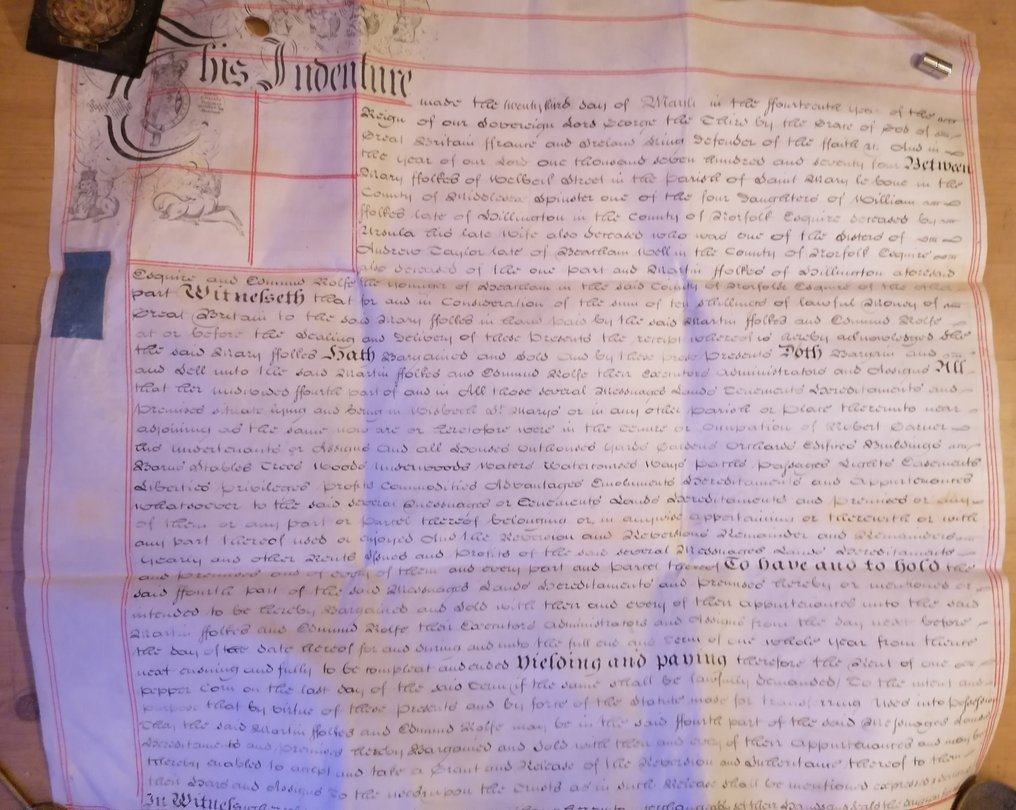 This Indenture
made the twenty third day of March in the ffourteenth year of the
Reign of our Sovereign Lord George the Third by the Grace of God of
Great Britain ffrance and Ireland King Defender of the ffaith &c. And in
the year of our Lord One thousand seven hundred and seventy four Between
Mary ffolkes of Welbeck Street in the parish of Saint Mary le bone in the
County of Middlesex Spinster one of the four Daughters of William
ffolkes late of Hillington in the County of Norfolk Esquire deceased by
Ursula his late Wife also deceased who was one of the Sisters of
Andrew Taylor late of Heacham Well in the County of Norfolk Esquire
also deceased of the one part and Martin ffolkes of Hillington aforesaid
Esquire and Edmund Rolfe the younger of Heacham in the said County of Norfolk Esquire of the other
part Witnesseth that for and in Consideration of the sum of ten shillings of lawful Money of
Great Britain to the said Mary ffolkes in hand paid by the said Martin ffolkes and Edmund Rolfe
at or before the Sealing and Delivery of these Presents the receipt whereof is hereby acknowledged She
the said Mary ffolkes Hath Bargained and Sold and by these presents Doth Bargain and
and Sell unto the said Martin ffolkes and Edmund Rolfe their Executors Administrators and Assigns All
that her undivided ffourth part of and in All those several Messuages Lands Tenements Hereditaments and
Premises situate lying and being in Wisbech St. Marys or in any other parish or place thereunto near
adjoining as the same now are or heretofore were in the tenure or occupation of Robert
his undertenants or Assigns and all Houses Outhouses Yards Gardens Orchards Edifices Buildings
Barns Stables Trees Woods Underwoods Waters Watercourses Ways paths passages Lights Easements
Liberties privileges profits Commodities Advantages Emoluments Hereditaments and Appurtenances
whatsoever to the said several Messuages or Tenements Lands Hereditaments and premises or any
of them or any part or parcel thereof belonging or in anywise appertaining or therewith or with
any part thereof used or enjoyed And the Reversion and Reversions Remainder and Remainders
yearly and other Rents Issues and profits of the said several Messuages Lands Hereditaments
and premises and of every of them and every part and parcel thereof To have and to hold the
said ffourth part of the said Messuages Lands Hereditaments and premises hereby or mentioned or
intended to be hereby Bargained and Sold with their and every of their appurtenances unto the said
Martin ffolkes and Edmund Rolfe their Executors Administrators and Assigns from the day next before
the day of the date hereof for and during and unto the full end and term of one whole year from thence
next ensuing and fully to be compleat and ended Yielding and paying therefore the Rent of one
pepper corn on the last day of the said Term (if the same shall be lawfully demanded) To the intent and
purpose that by virtue of these presents and by force of the Statute made for transferring Uses into possession
They the said Martin ffolkes and Edmund Rolfe may be in the said ffourth part of the said Messuages Lands
Hereditaments and premises hereby Bargained and Sold with their and every of their appurtenances and may be
thereby enabled to accept and take a Grant and Release of the Reversion and Inheritance thereof to them
their Heirs and Assigns To the uses upon the Trusts as in such Release shall be mentioned expressed
In Witness